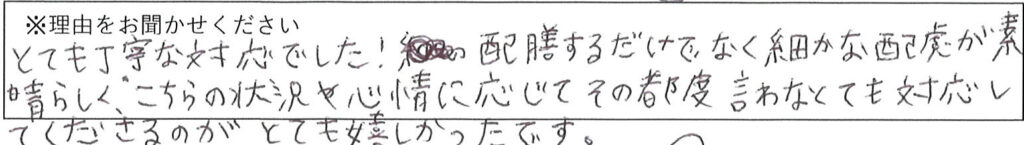 ※理由をお聞かせください
とても丁寧な対応でした！配膳するだけでなく細かな配慮が素
晴らしく、こちらの状況や心情に応じてその都度言わなくても対応し
てくださるのがとても嬉しかったです。